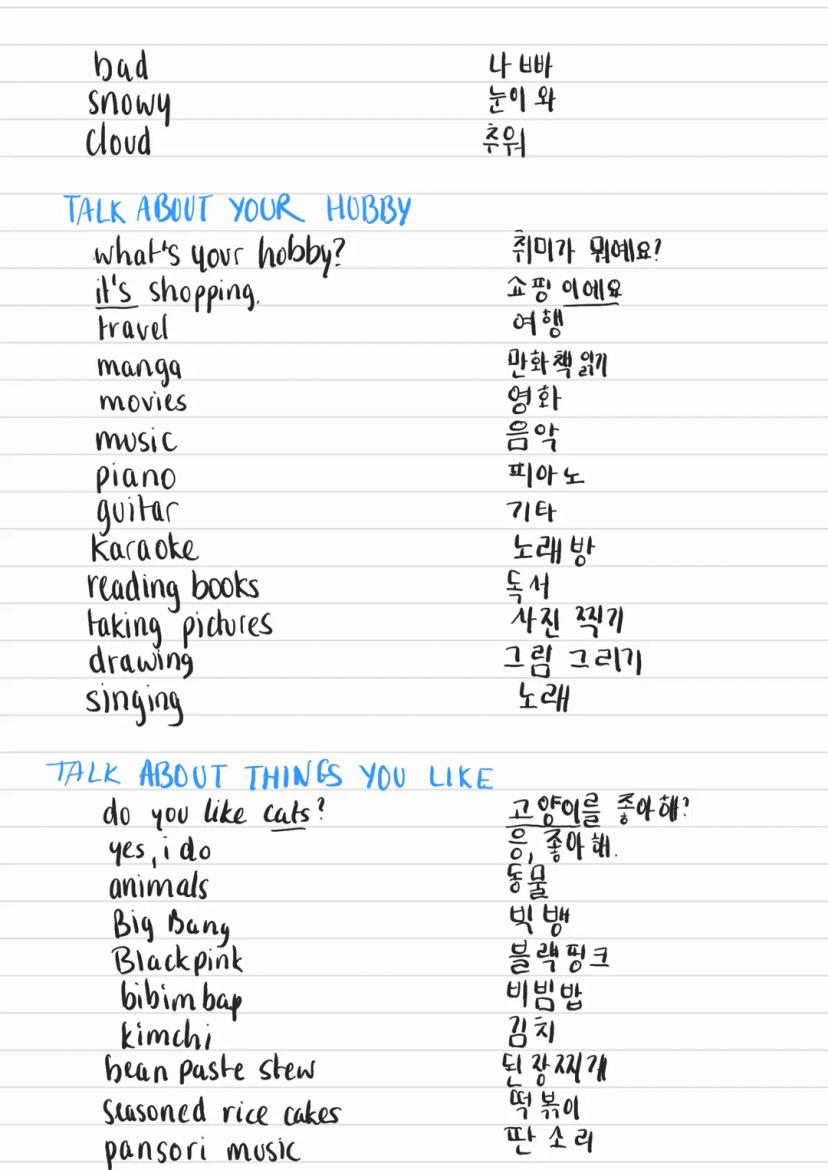 bad 나빠
snowy 눈이 와
cloud 추워
TALK ABOUT YOUR HOBBY
what's your hobby? 취미가 뭐예요?
it's shopping. 쇼핑이에요
travel 여행
manga 만화책 읽기
movies 영화
music 음악
piano 피아노
guitar 기타
karaoke 노래방
reading books 독서
taking pictures 사진 찍기
drawing 그림 그리기
singing 노래
TALK ABOUT THINGS YOU LIKE
do you like cats? 고양이를 좋아해?
yes, i do 응, 좋아해.
animals 동물
Big Bang 빅뱅
Blackpink 블랙핑크
bibimbap 비빔밥
kimchi 김치
bean paste stew 된장찌개
seasoned rice cakes 떡볶이
pansori music 판소리